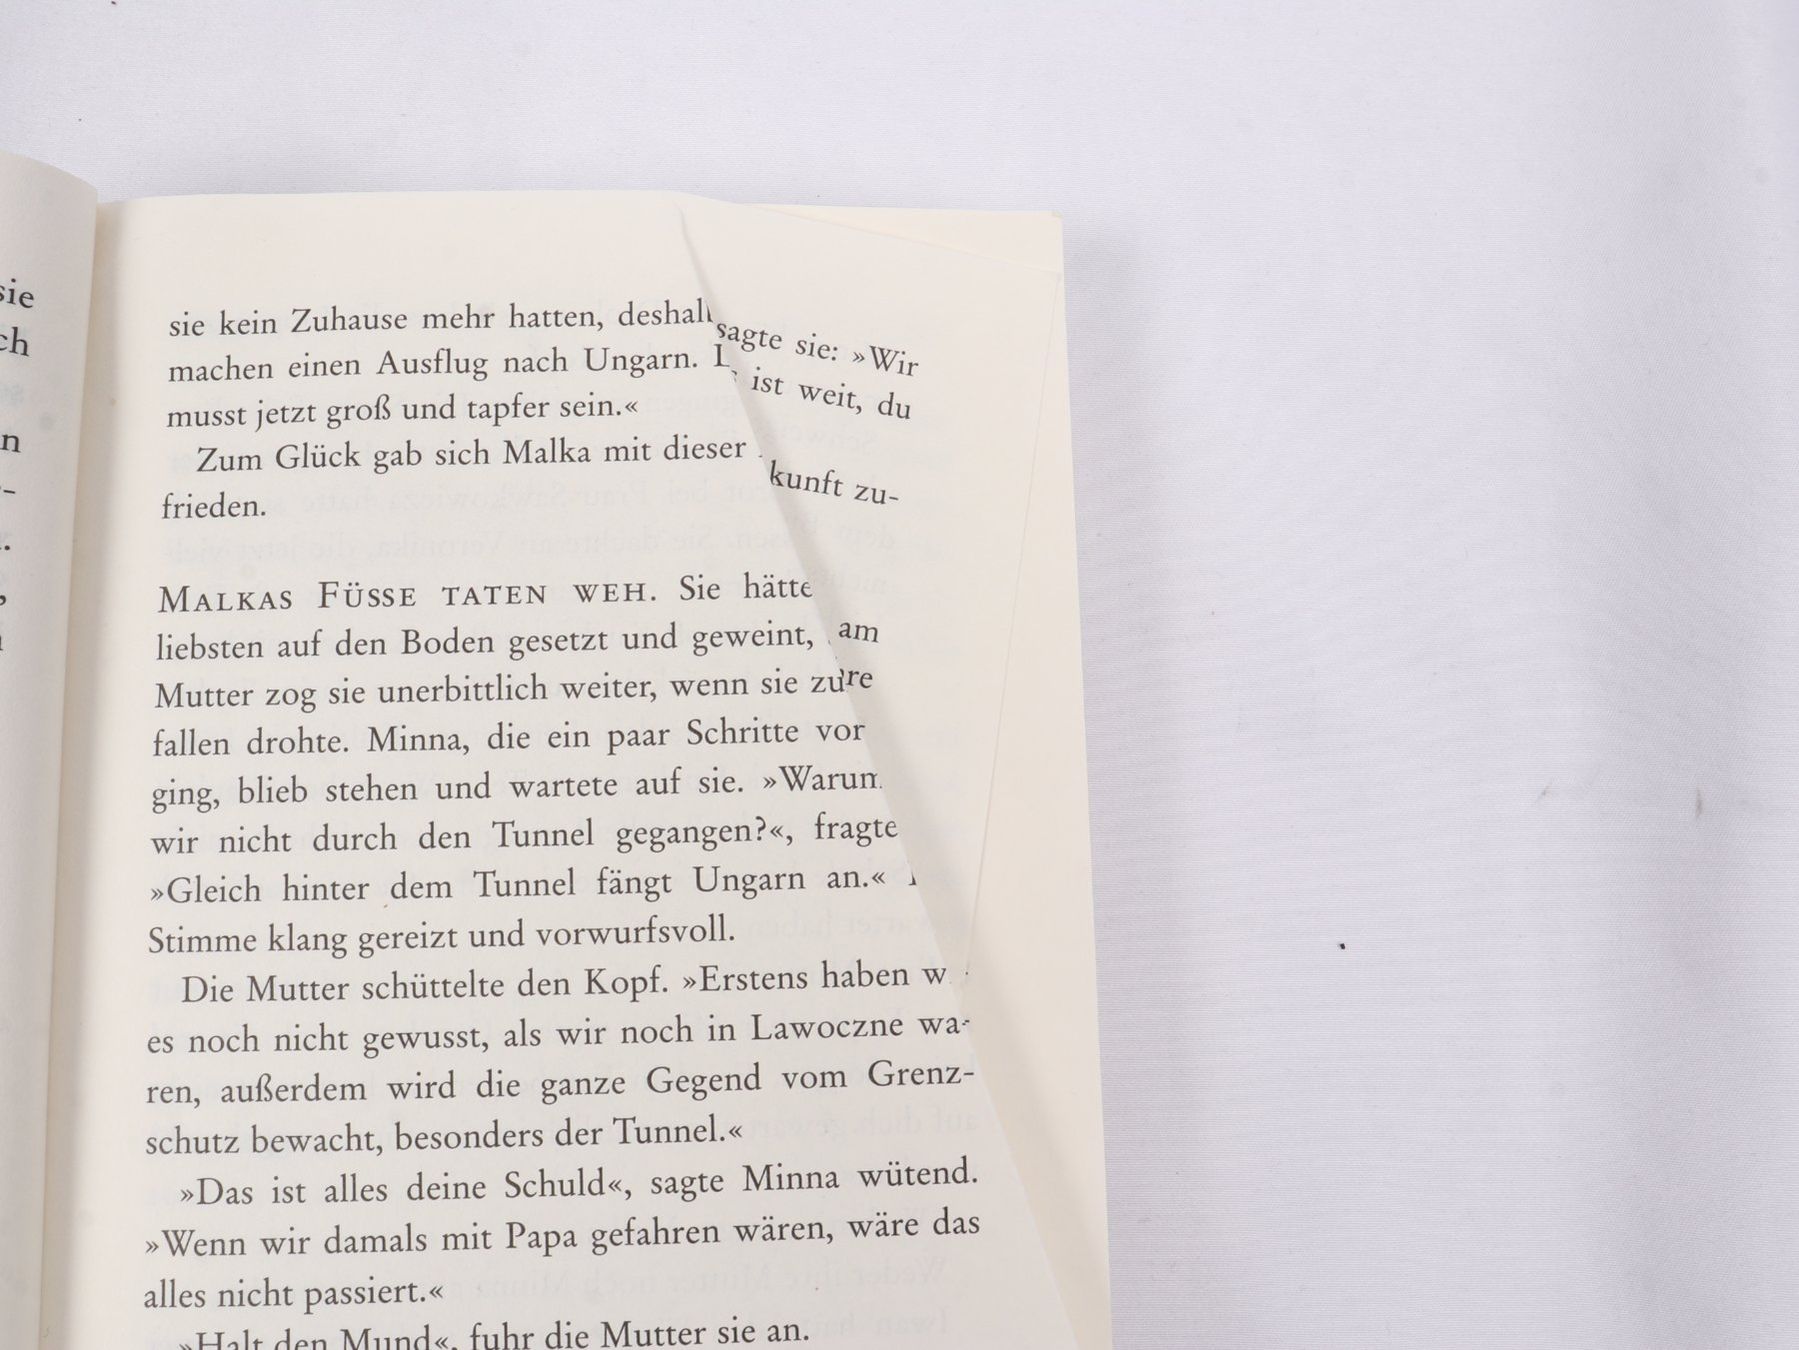 sie
ch
n
sie kein Zuhause mehr hatten, sagte sie: »Wir
machen einen Ausflug nach Ungarn. ist weit, du
musst jetzt groß und tapfer sein.«
Zum Glück gab sich Malka mit dieser kunft zu-
frieden.
MALKAS FÜSSE TATEN WEH. Sie hätte am
liebsten auf den Boden gesetzt und geweint,
Mutter zog sie unerbittlich weiter, wenn sie
fallen drohte. Minna, die ein paar Schritte vor
ging, blieb stehen und wartete auf sie.
wir nicht durch den Tunnel gegangen?«, fragte
»Gleich hinter dem Tunnel fängt Ungarn an.«
Stimme klang gereizt und vorwurfsvoll.
Die Mutter schüttelte den Kopf. »Erstens haben
es noch nicht gewusst, als wir noch in Lawoczne wa-
ren, außerdem wird die ganze Gegend vom Grenz-
schutz bewacht, besonders der Tunnel.«
»Das ist alles deine Schuld«, sagte Minna wütend.
»Wenn wir damals mit Papa gefahren wären, wäre das
alles nicht passiert.«
»Halt den Mund«, fuhr die Mutter sie an.